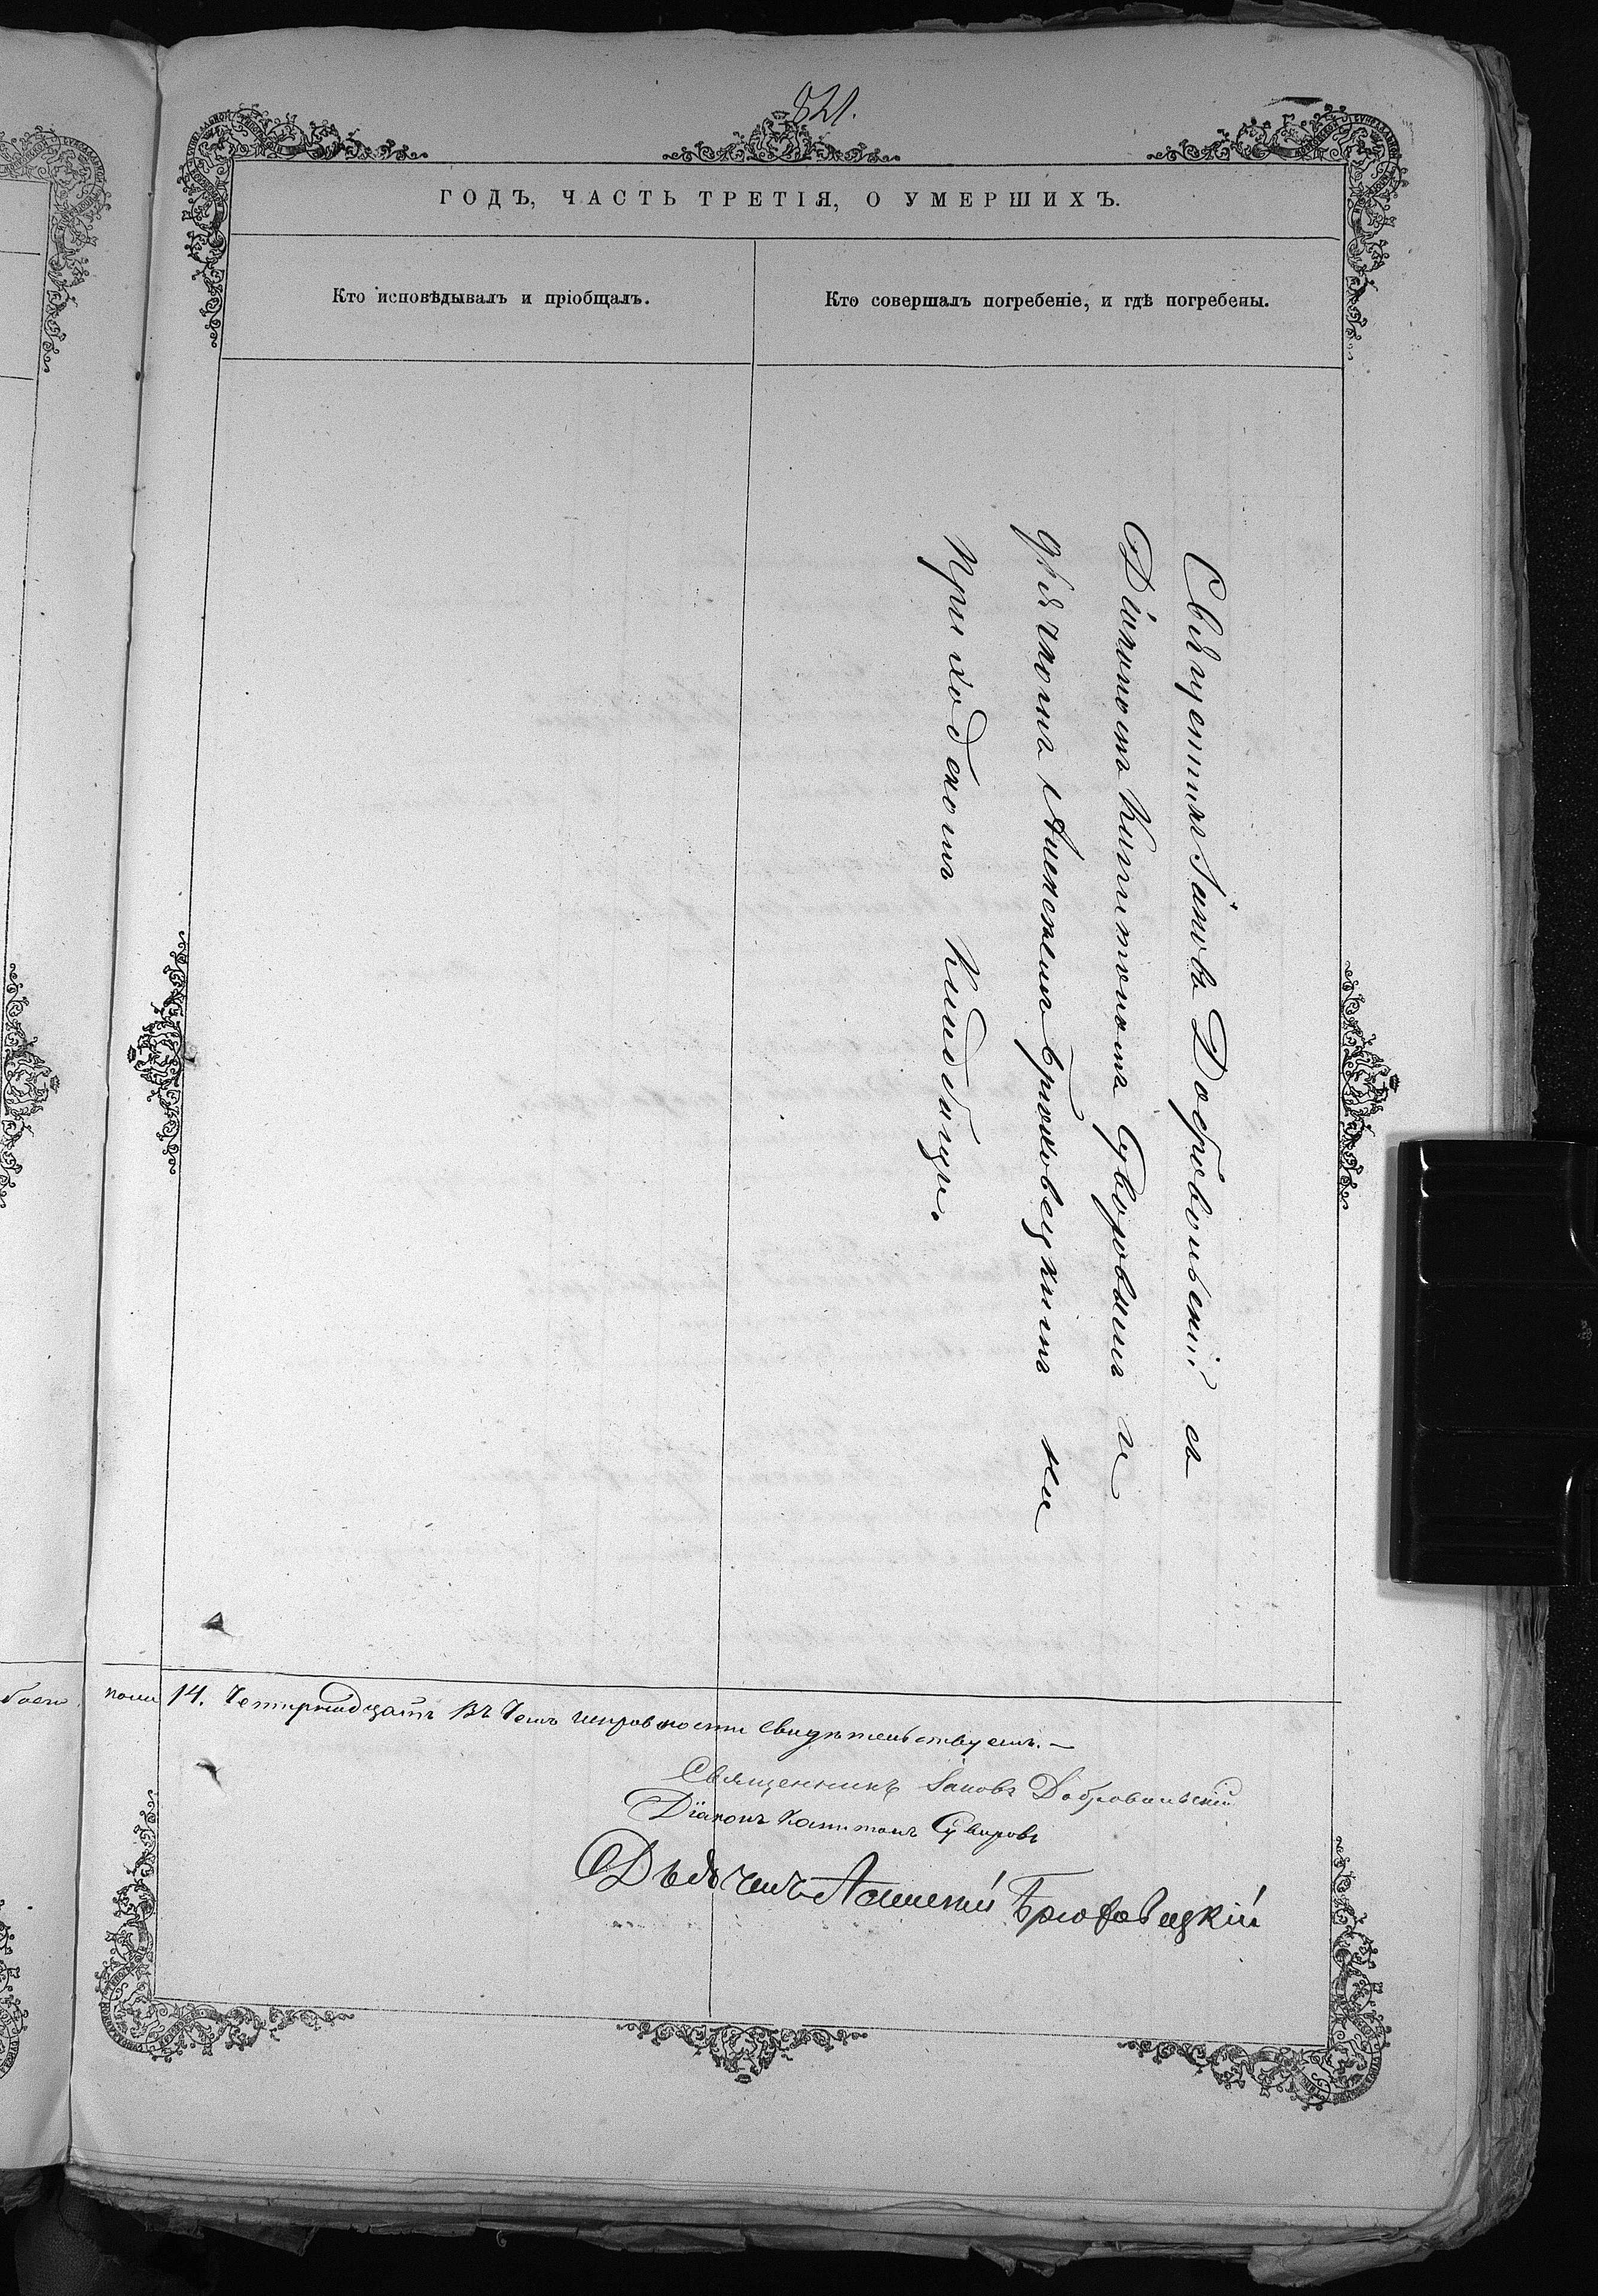 821.
ГОДЪ, ЧАСТЬ ТРЕТІЯ, О УМЕРШИХЪ.
Кто исповѣдывалъ и пріобщалъ.
Кто совершалъ погребеніе, и гдѣ погребены.
Священникъ Іаковъ Добровольскій съ
Діакономъ Капитономъ Суворовымъ и
дьячкомъ Алексѣемъ Брюховецкимъ на
приходскомъ кладбищѣ.
14. Четырнадцать въ чемъ исправности свидѣтельствуемъ. —
Священникъ Іаковъ Добровольскій
Діаконъ Капитонъ Суворовъ
Дьячекъ Алексѣй Брюховецкій